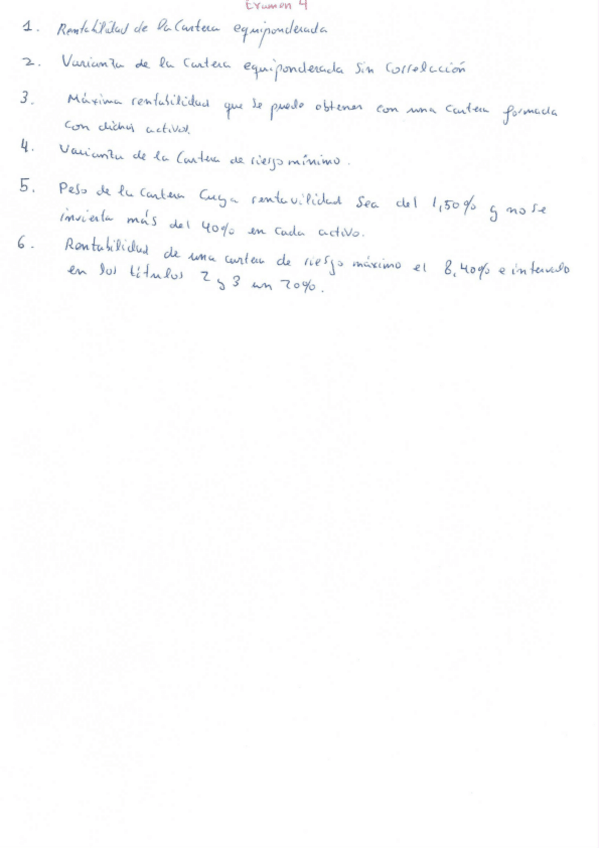 Examen 4
1. Rentabilidad de la Cartera equiponderada
2. Varianza de la Cartera equiponderada sin correlación
3. Máxima rentabilidad que se puede obtener con una cartera formada
con dichos activos.
4. Varianza de la Cartera de riesgo mínimo.
5. Peso de la cartera cuya rentavilidad sea del 1,50% y no se
invierta más del 40% en cada activo.
6. Rentabilidad de una cartera de riesgo máximo el 8,40% e intervalo
en los títulos 2 y 3 un 20%.